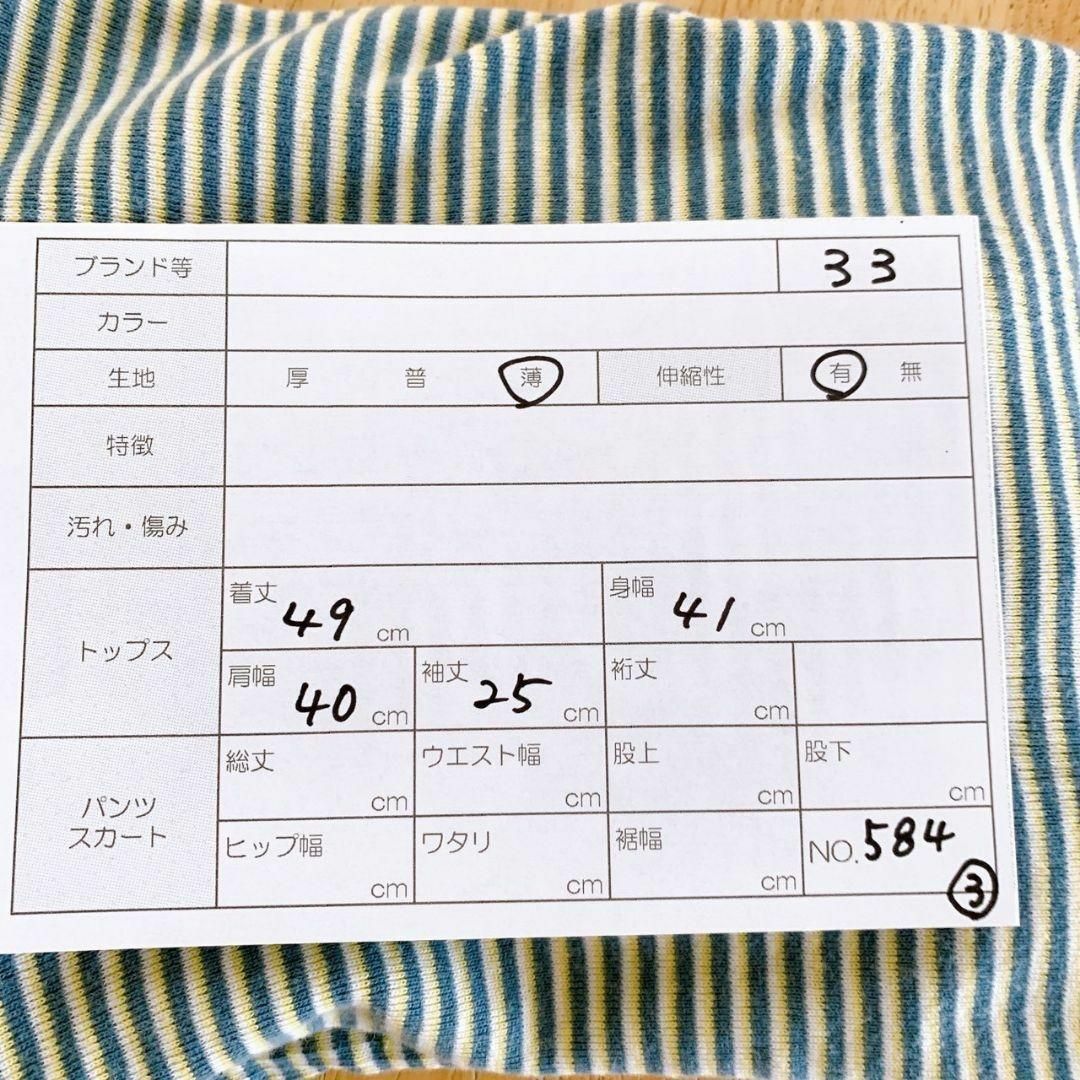 ブランド等 33
カラー
生地 厚 普 薄 伸縮性 有 無
特徴
汚れ・傷み
トップス
着丈 49 cm 身幅 41 cm
肩幅 40 cm 袖丈 25 cm 裄丈 cm
パンツ
スカート
総丈 cm ウエスト幅 cm 股上 cm 股下 cm
ヒップ幅 cm ワタリ cm 裾幅 cm NO. 584
③